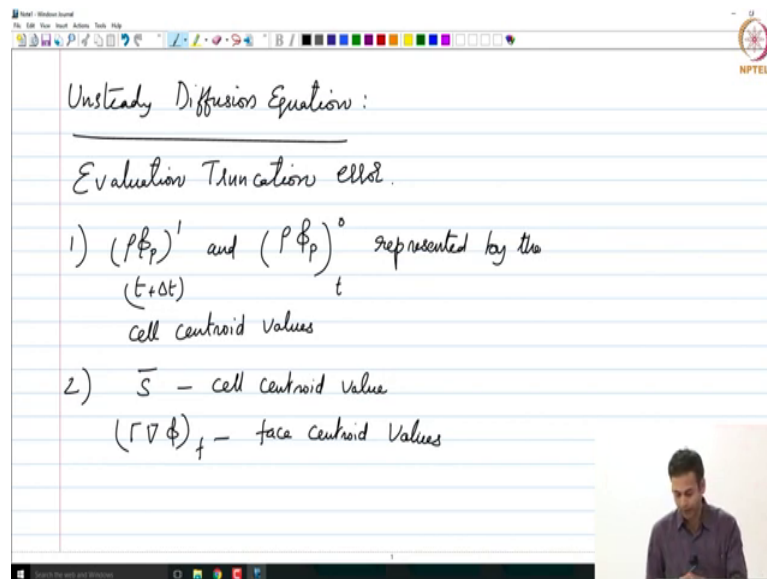 Note1 - Windows Journal
File Edit View Insert Actions Tools Help
NPTEL
Unsteady Diffusion Equation :
Evaluation Truncation error.
1) (ρϕ_P)^1 and (ρϕ_P)^0 represented by the
(t+Δt) t
cell centroid values
2) S̅ - cell centroid value
(Γ∇ϕ)_f - face centroid values
1
Search the web and Windows